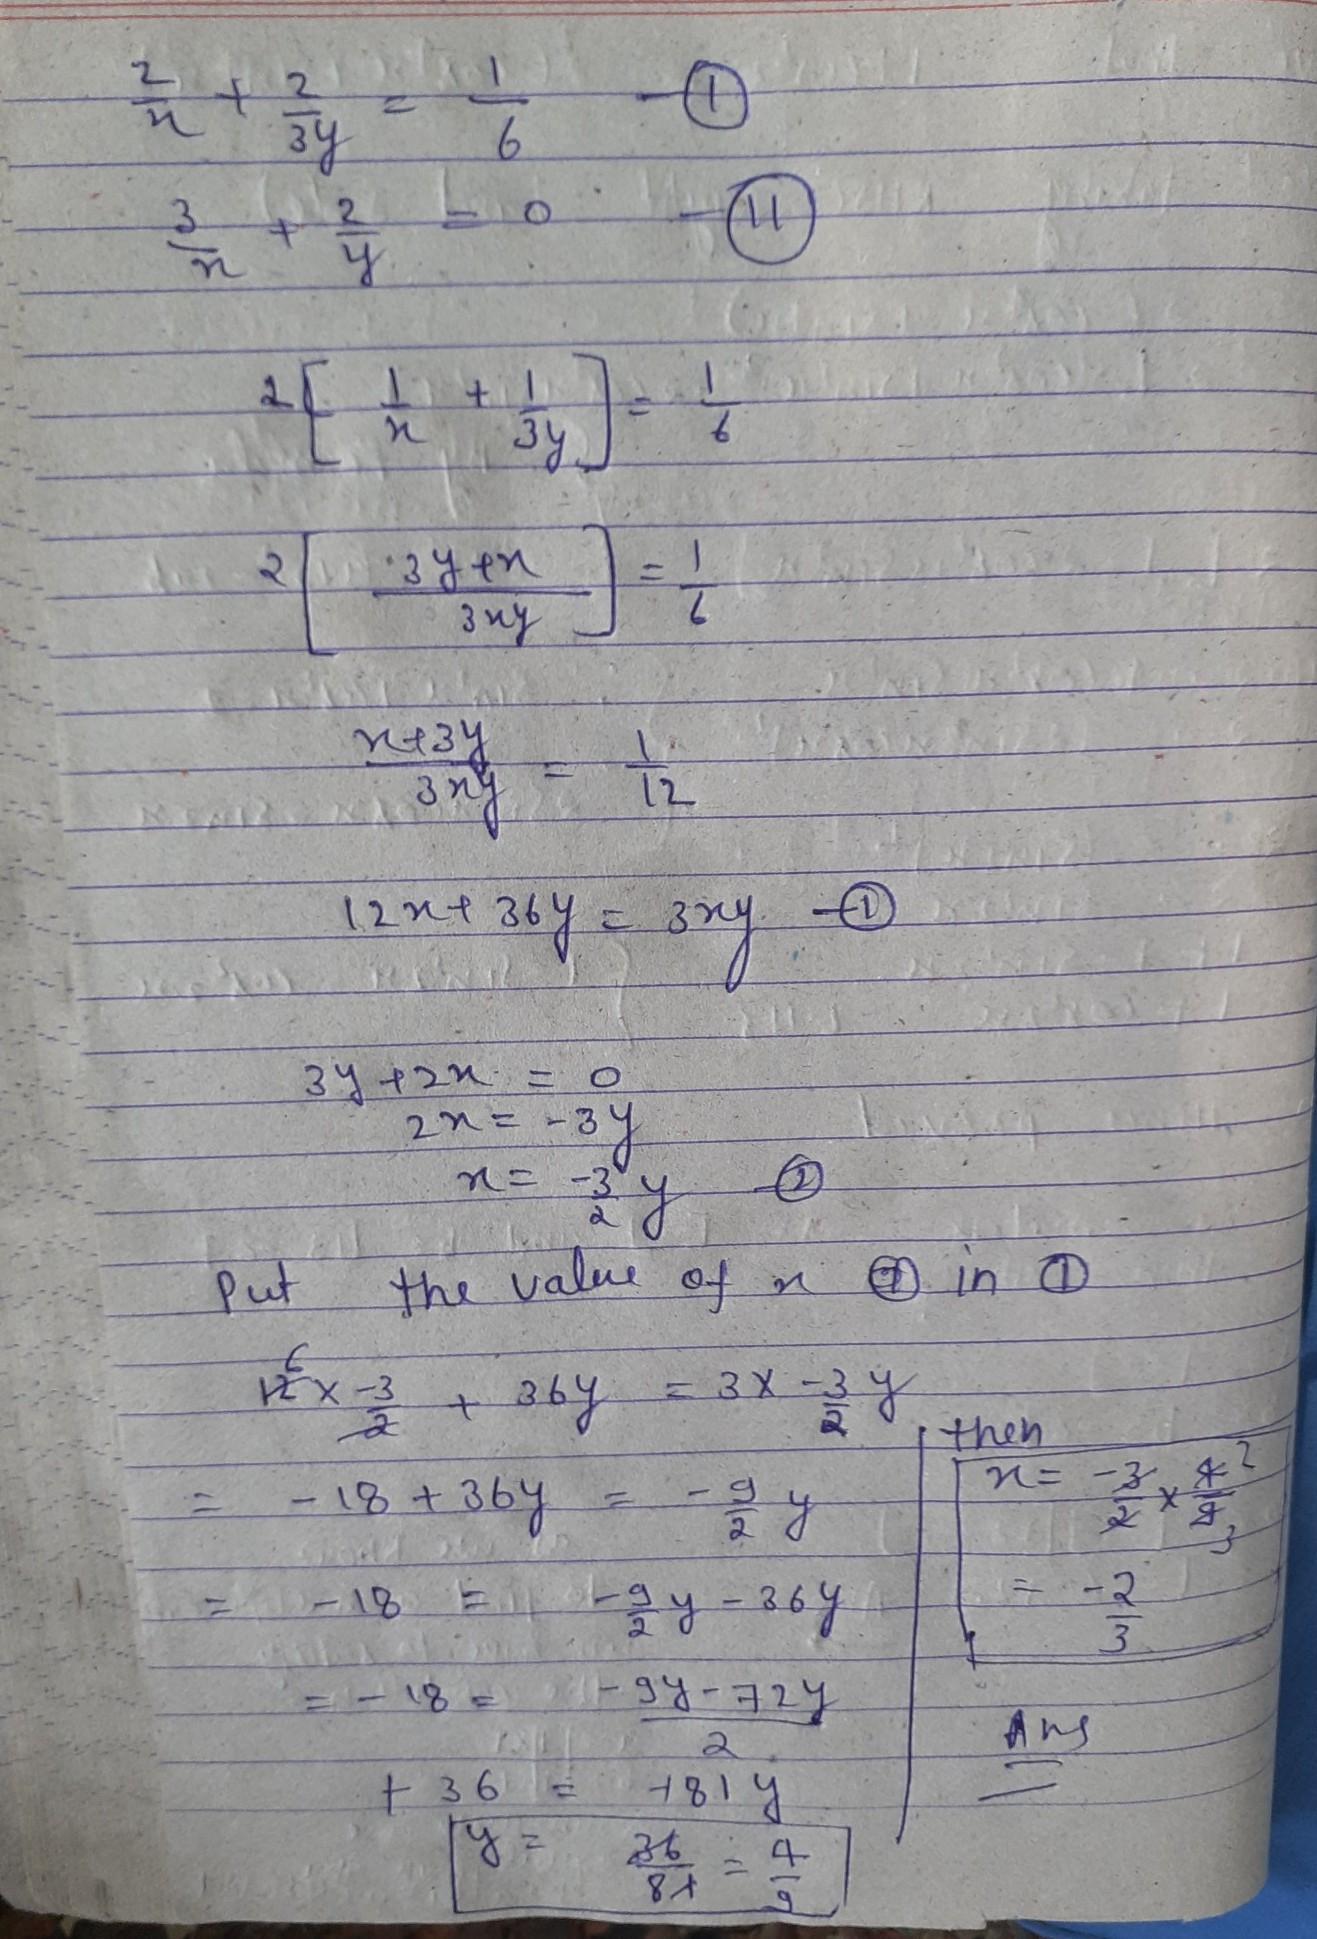 2/x + 2/3y = 1/6 — ①
3/x + 2/y = 0 — ⑪
2[1/x + 1/3y] = 1/6
2[3y+x/3xy] = 1/6
x+3y/3xy = 1/12
12x + 36y = 3xy — ①
3y + 2x = 0
2x = -3y
x = -3/2 y — ②
Put the value of x ② in ①
12 6 x -3/2 + 36y = 3x -3/2 y
= -18 + 36y = -9/2 y
= -18 = -9/2 y - 36y
= -18 = -9y - 72y/2
+ 36 = +81y
y = 36/81 = 4/9
then
x = -3/2 x 4/9 2 3
= -2/3
Ans